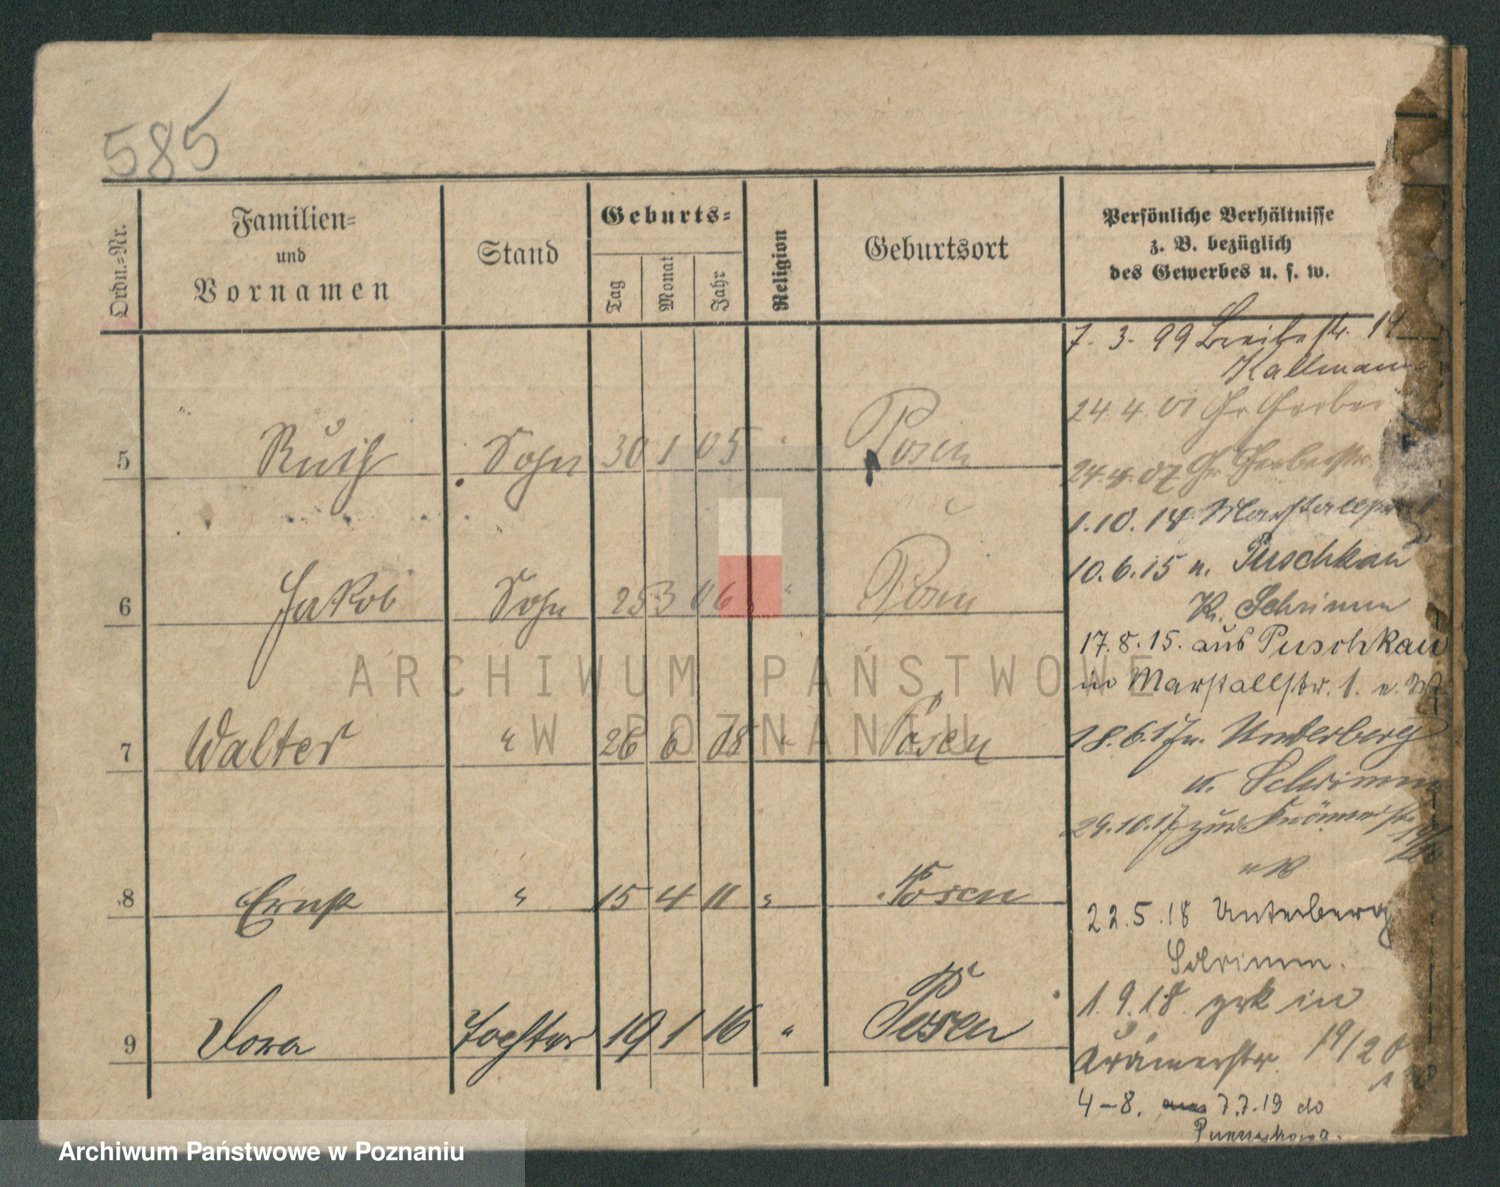 585
Ordn.-Nr.
Familien-
und
Vornamen
Stand
Geburts-
Tag
Monat
Jahr
Religion
Geburtsort
Persönliche Verhältnisse
z. B. bezüglich
des Gewerbes u. s. w.
7. 3. 99 Breitestr. 19
Kallmann
24. 4. 01 Gr Gerber
5 Ruth Sohn 30 1 05 " Posen
24.4.07 Gr. Gerberstr.
1.10.14 Marstallstr. 1
10.6.15 n. Puschkau
K. Schrimm
6 Jakob Sohn 25 3 06 " Posen
17.8.15. aus Puschkau
in Marstallstr. 1.
7 Walter " 26 6 08 " Posen
18.6.17 n. Unterberg
K. Schrimm
29.10.17 zur Krämerstr. 19/20
8 Ernst " 15 4 11 " Posen
22.5.18 Unterberg
Schrimm.
1.9.18 zrk in
9 Dora Tochter 19 1 16 " Posen
Krämerstr. 19/20
4-8. 7.7.19 do
ARCHIWUM PAŃSTWOWE
W POZNANIU
Archiwum Państwowe w Poznaniu